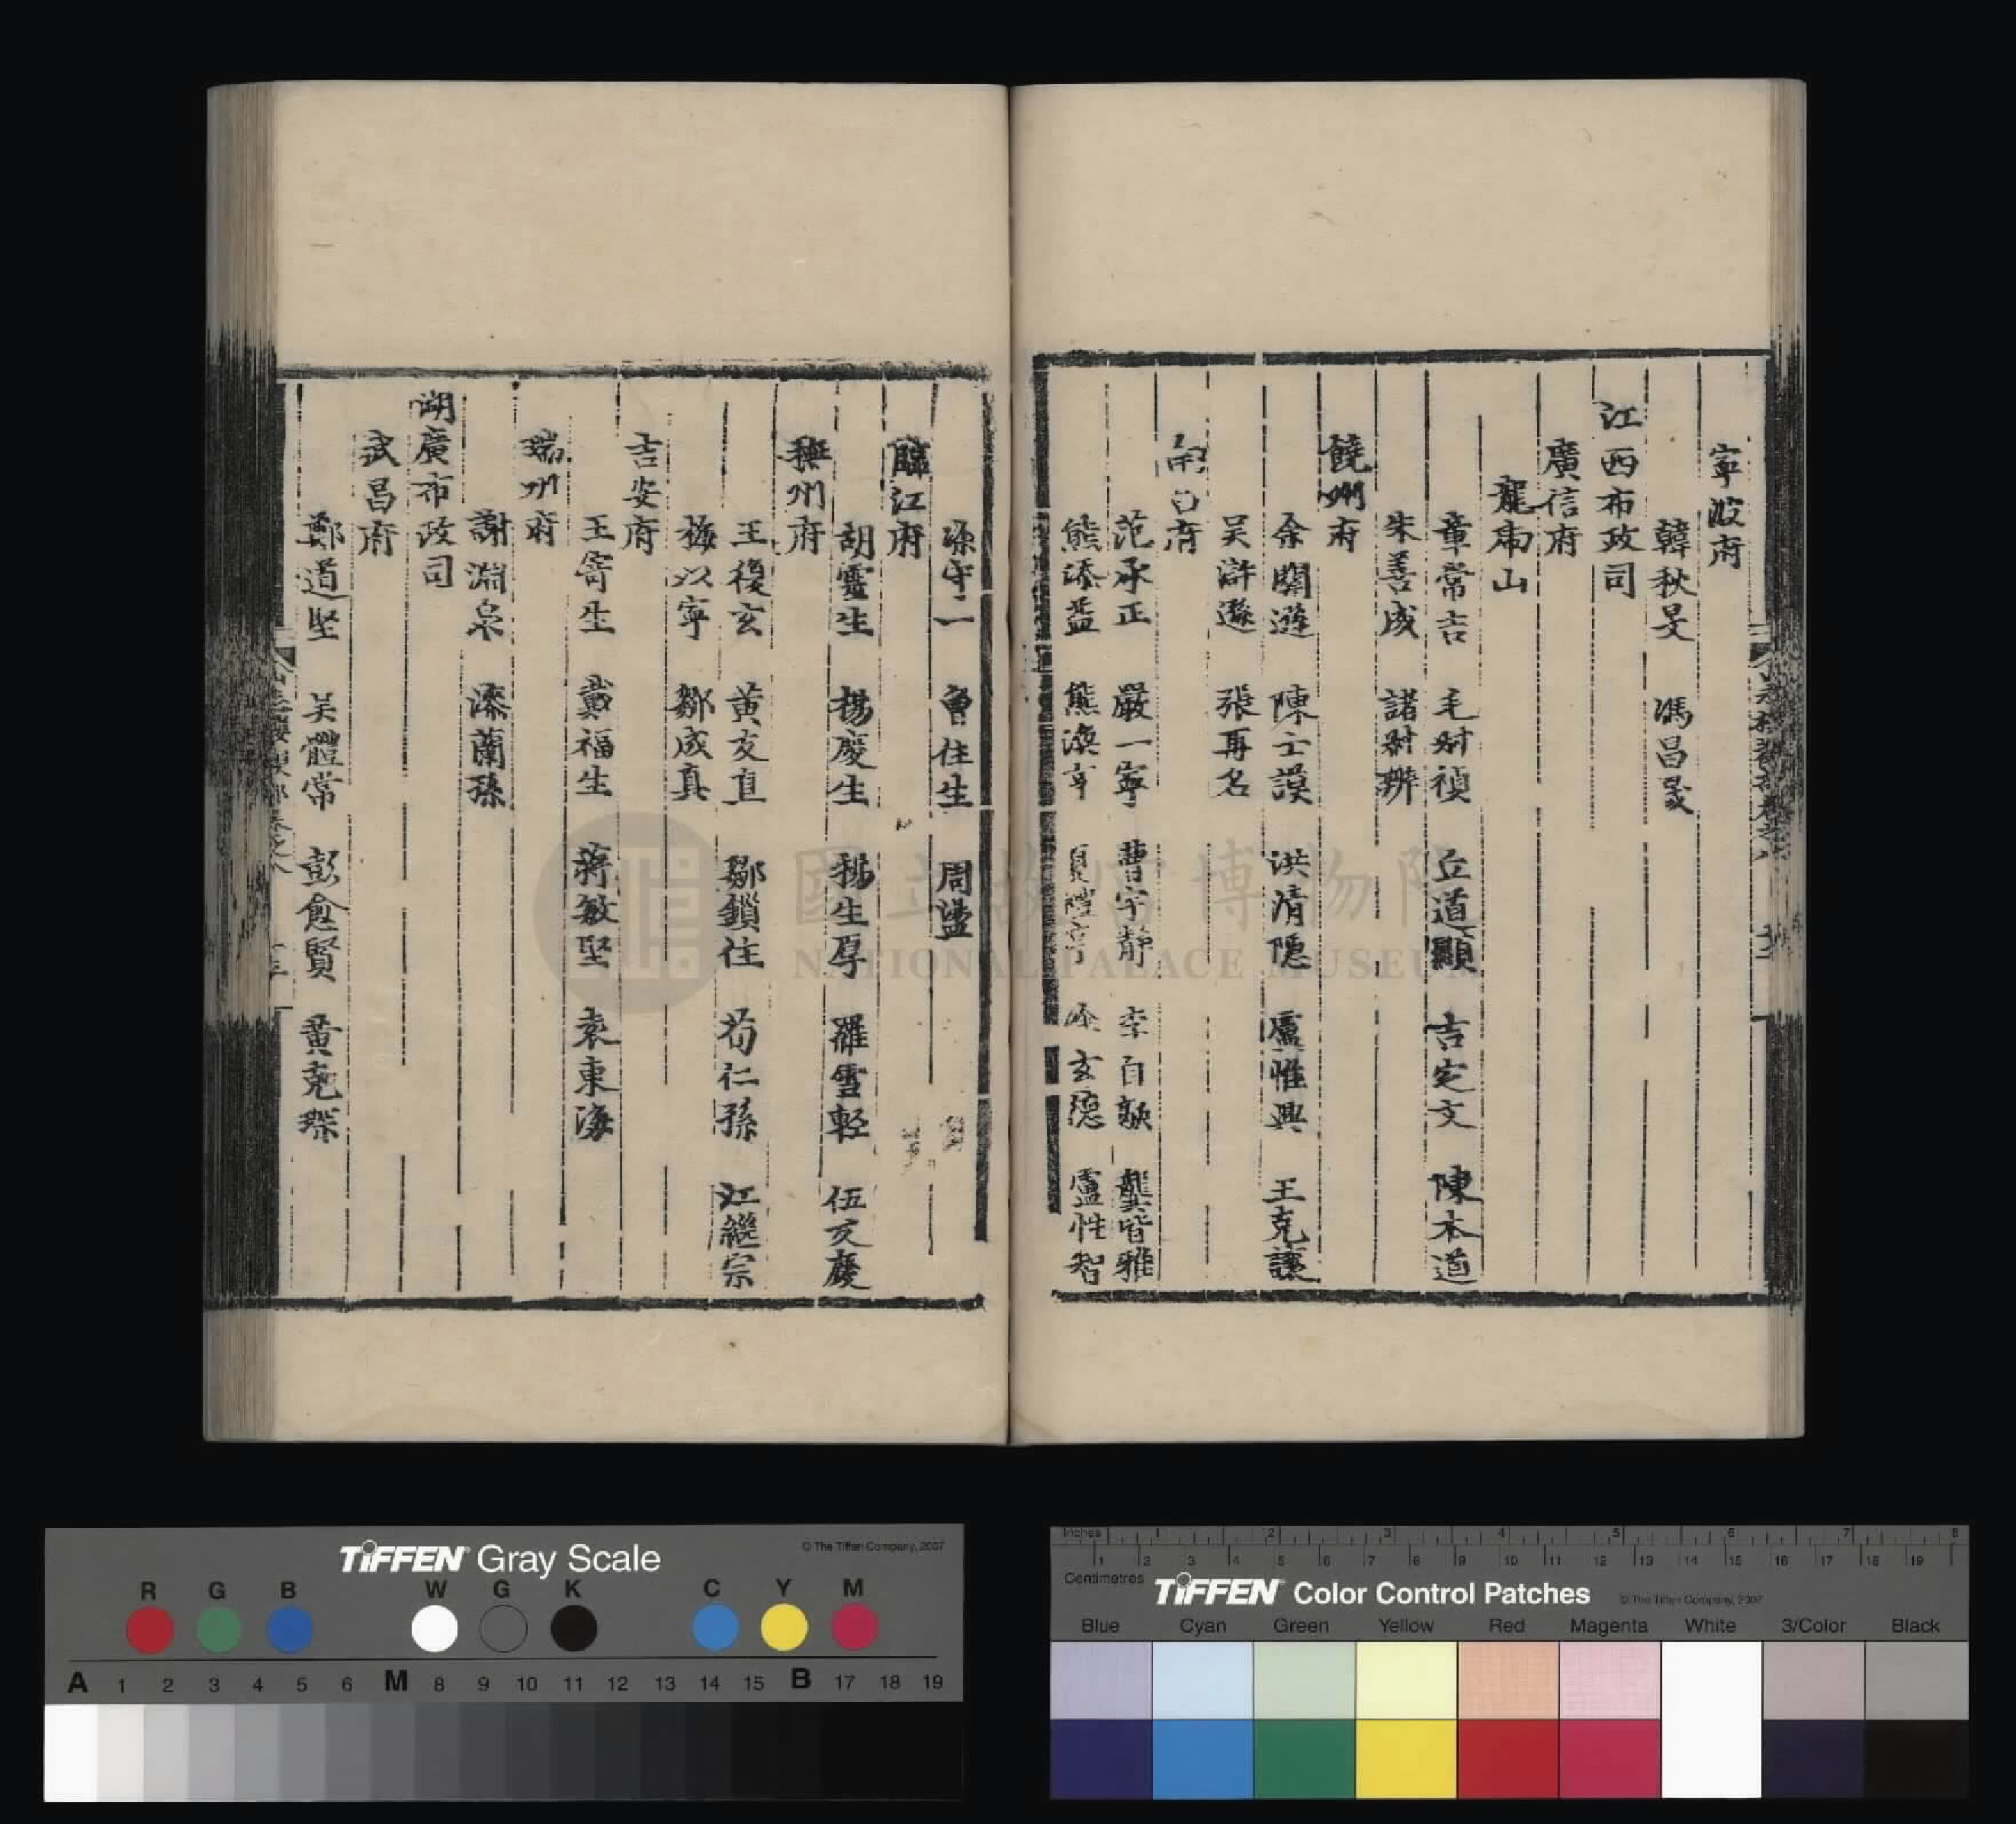 寧波府
韓秋旻 馮昌晟
江西布政司
廣信府
龍虎山
章常吉 毛尌禎 丘道顯 吉定文 陳本道
朱善成 諸尌辦
饒州府
余關遜 陳士謨 洪清隱 盧惟興 王克讓
吴滸遜 張再名
府
范承正 嚴一寧 曹宇靜 李自 龔皆雅
熊添益 熊渙亨 夏禮亨 玄德 盧性智
守二 曾住生 周
臨江府
胡靈生 楊慶生 楊生孚 羅雪輕 伍文慶
撫州府
王復玄 黃文直 鄒鎖住 荀仁孫 江繼宗
梅以寧 鄒成真
吉安府
王寄生 戴福生 蔣敏堅 袁東海
瑞州府
謝淵泉 漆蘭孫
湖廣布政司
武昌府
鄭道堅 吴體常 彭愈賢 黃克琛
國立故宮博物院
NATIONAL PALACE MUSEUM
TIFFEN Gray Scale
© The Tiffen Company, 2007
R G B W G K C Y M
A 1 2 3 4 5 6 M 8 9 10 11 12 13 14 15 B 17 18 19
Inches 1 2 3 4 5 6 7 8
1 2 3 4 5 6 7 8 9 10 11 12 13 14 15 16 17 18 19
Centimetres
TIFFEN Color Control Patches
© The Tiffen Company, 2007
Blue Cyan Green Yellow Red Magenta White 3/Color Black